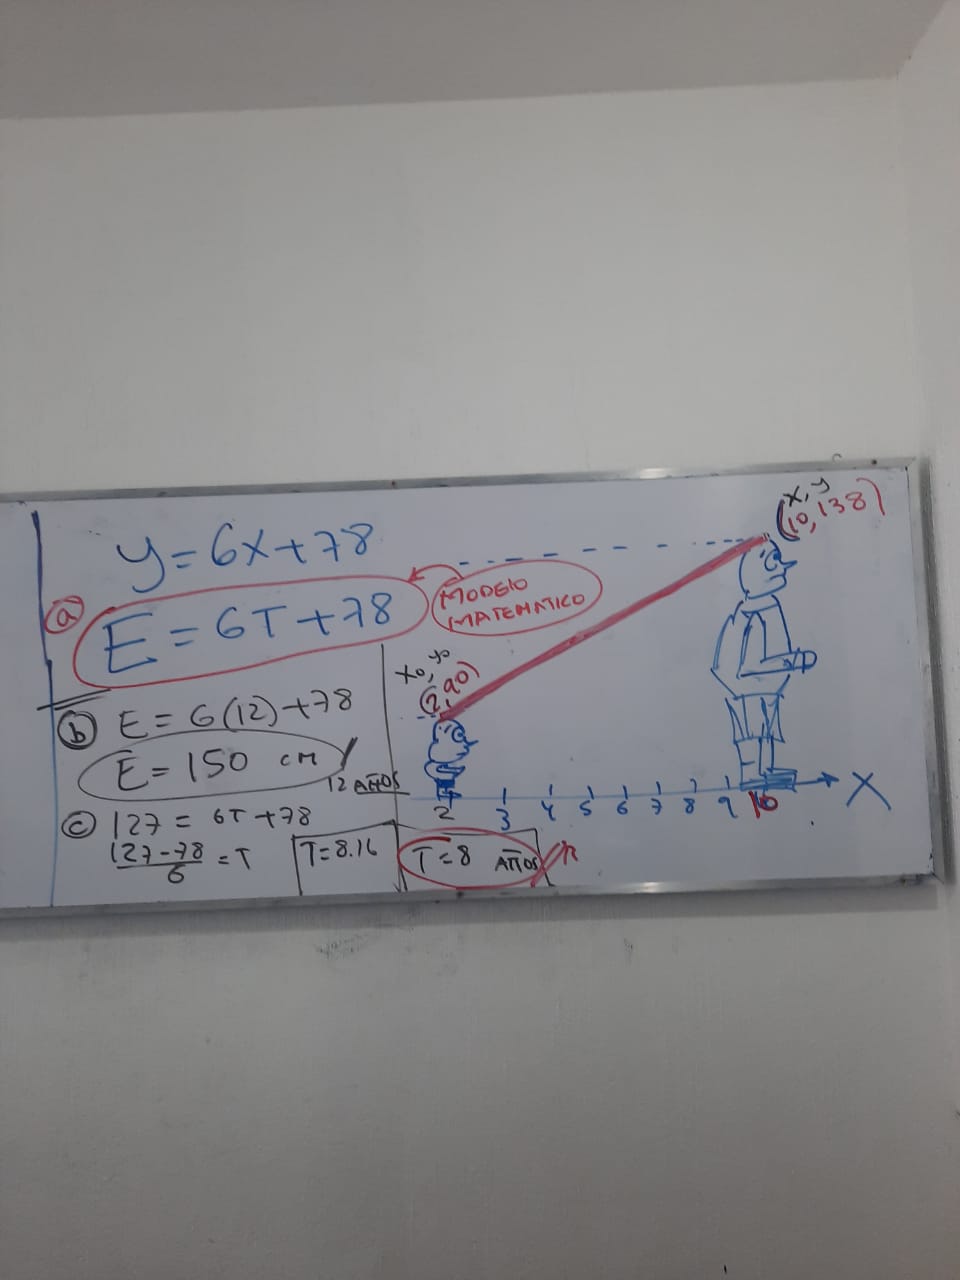 y = 6x + 78
a
E = 6T + 78
MODELO
MATEMATICO
b
E = 6(12) + 78
E = 150 cm
12 AÑOS
c
127 = 6T + 78
127 - 78
6
= T
T = 8.16
T = 8 AÑOS
R
x, y
(10, 138)
x0, y0
(2, 90)
2 3 4 5 6 7 8 9 10
X